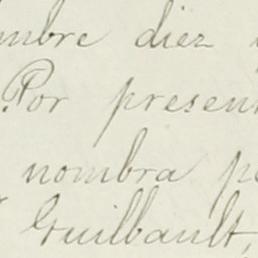 mbre diez
Por presen
nombra p
Guilbault,